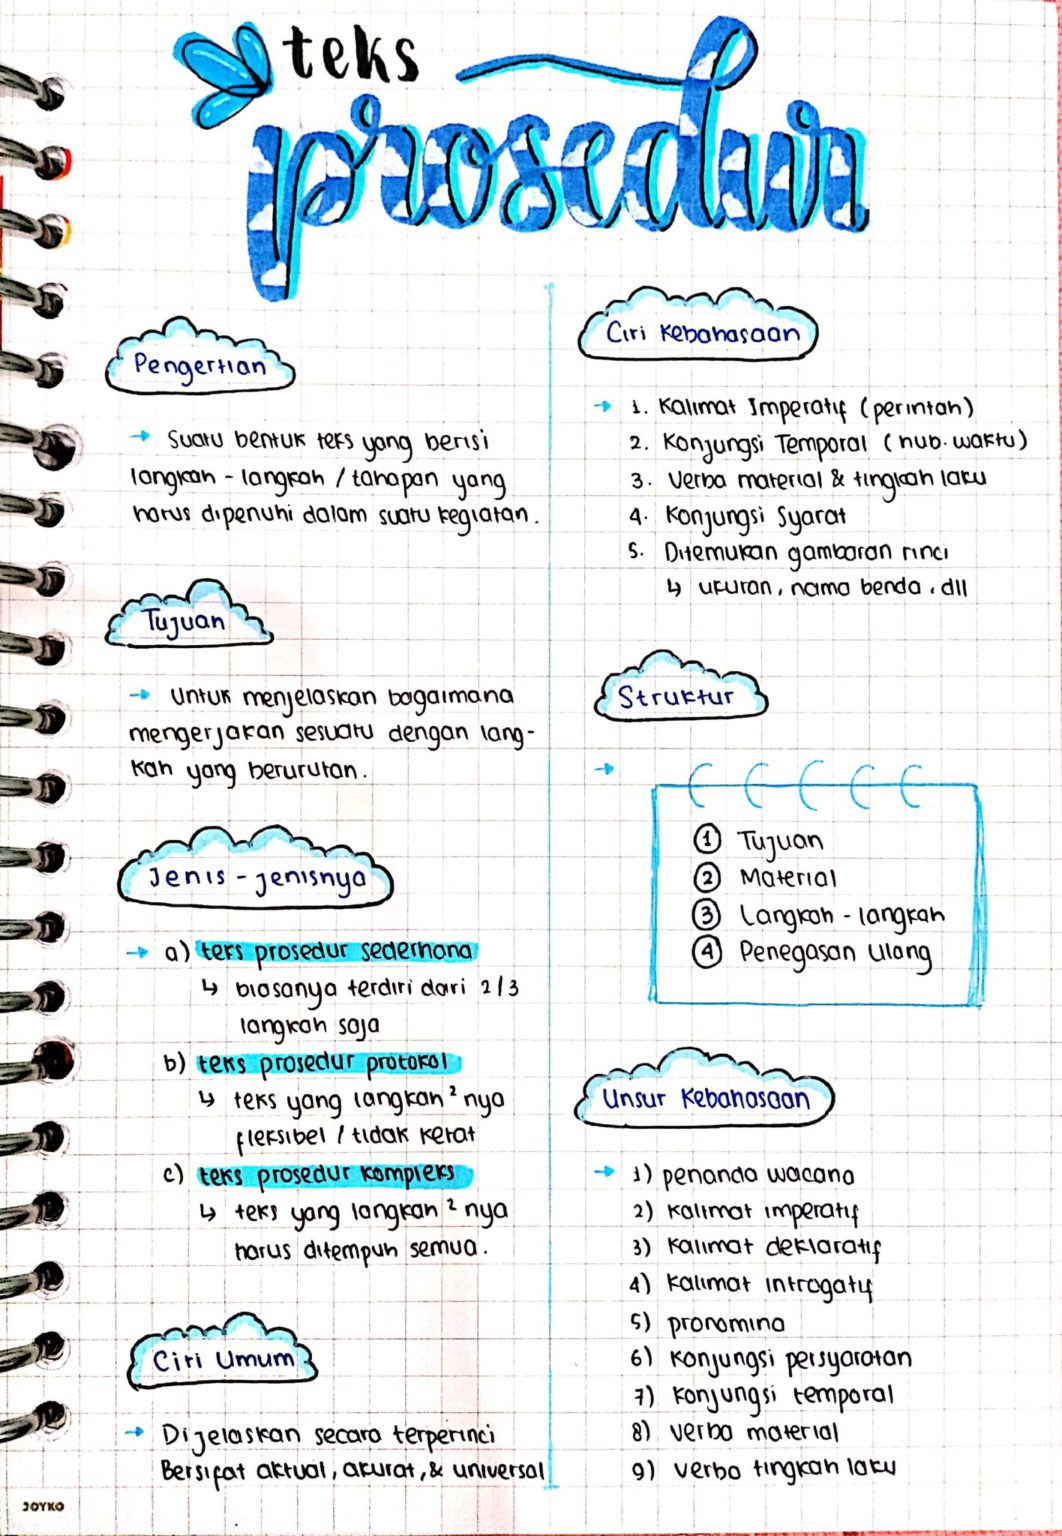 teks
prosedur
Pengertian
→ Suatu bentuk teks yang berisi
langkah - langkah / tahapan yang
harus dipenuhi dalam suatu kegiatan.
Tujuan
→ Untuk menjelaskan bagaimana
mengerjakan sesuatu dengan lang-
kah yang berurutan.
Jenis - jenisnya
→ a) teks prosedur sederhana
↳ biasanya terdiri dari 2/3
langkah saja
b) teks prosedur protokol
↳ teks yang langkah² nya
fleksibel / tidak ketat
c) teks prosedur kompleks
↳ teks yang langkah² nya
harus ditempuh semua.
Ciri Umum
→ Dijelaskan secara terperinci
Bersifat aktual, akurat, & universal
Ciri Kebahasaan
→ 1. Kalimat Imperatif (perintah)
2. Konjungsi Temporal (hub. waktu)
3. Verba material & tingkah laku
4. Konjungsi Syarat
5. Ditemukan gambaran rinci
↳ ukuran, nama benda, dll
Struktur
→
① Tujuan
② Material
③ Langkah - langkah
④ Penegasan Ulang
Unsur Kebahasaan
→ 1) penanda wacana
2) kalimat imperatif
3) kalimat deklaratif
4) kalimat introgatif
5) pronomina
6) konjungsi persyaratan
7) konjungsi temporal
8) verba material
9) verba tingkah laku
JOYKO